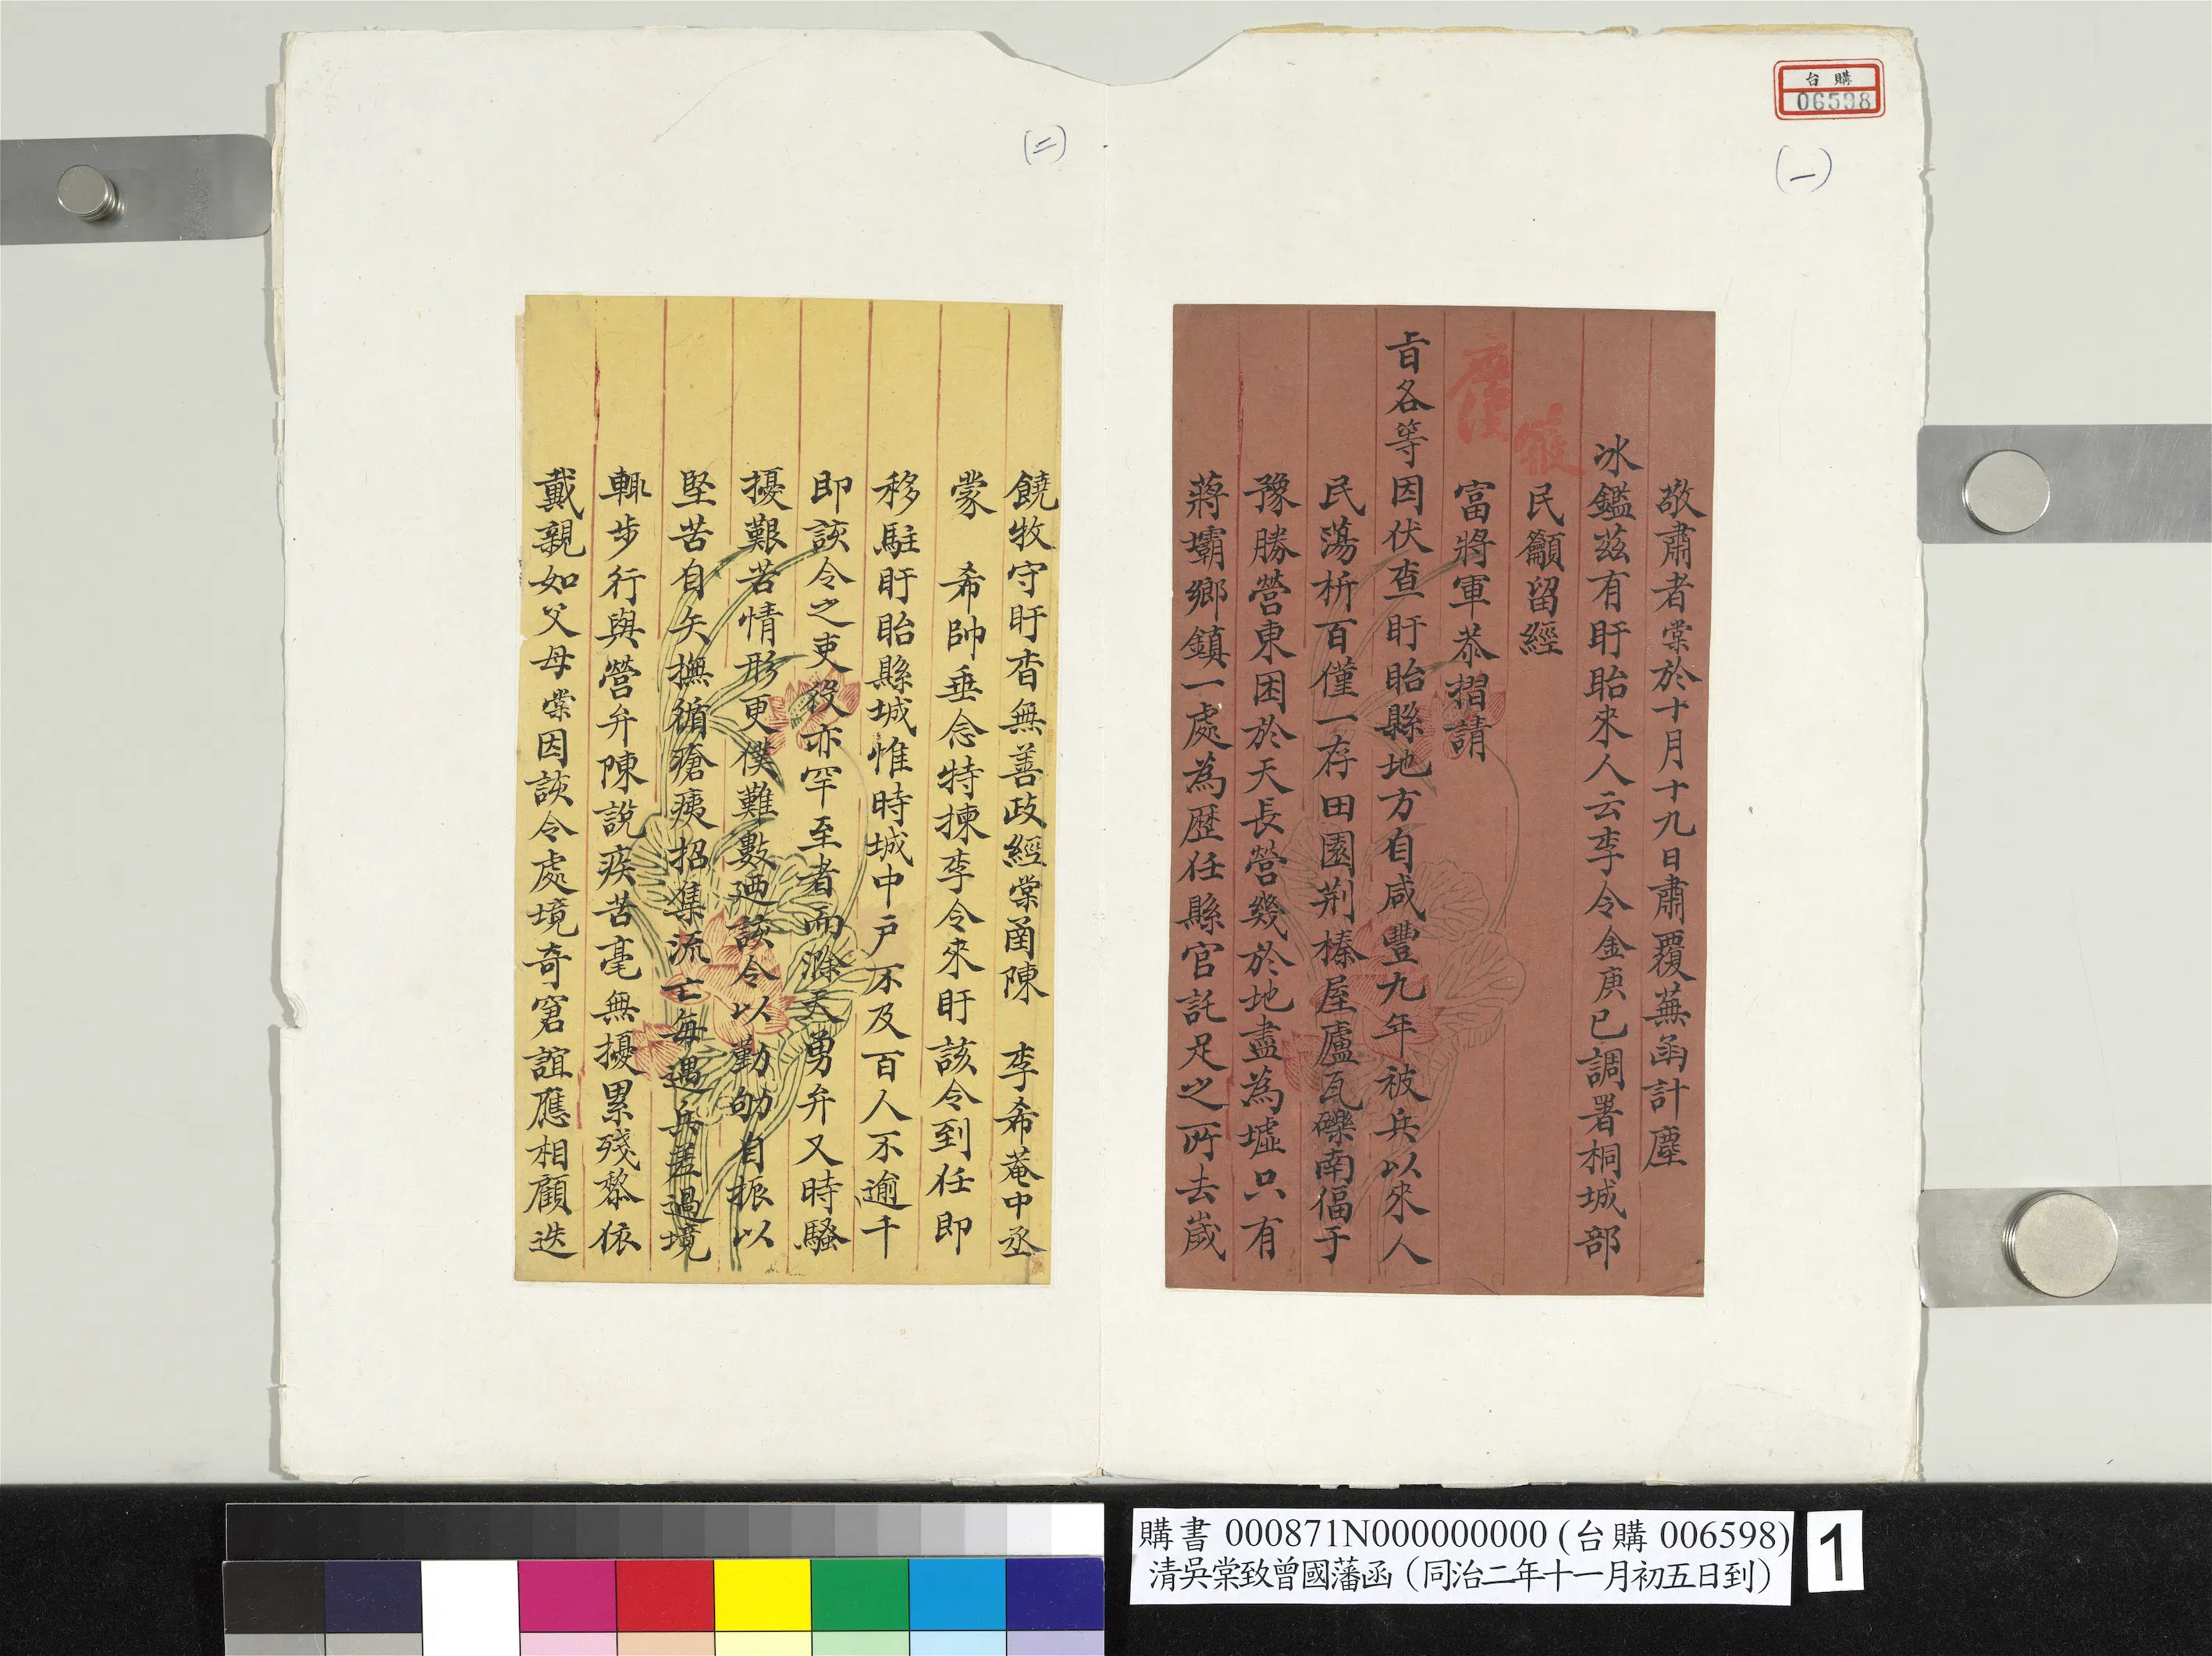 台購
06598
(一)
敬肅者棠於十月十九日肅覆蕪函計塵
冰鑑茲有盱眙來人云李令金庚已調署桐城部
民籲留經
富將軍恭摺請
旨各等因伏查盱眙縣地方自咸豐九年被兵以來人
民蕩析百僅一存田園荆榛屋廬瓦礫南偪于
豫勝營東困於天長營幾於地盡為墟只有
蔣壩鄉鎮一處為歷任縣官託足之所去歲
(二)
饒牧守盱杳無善政經棠函陳 李希菴中丞
蒙 希帥垂念特揀李令來盱該令到任即
移駐盱眙縣城惟時城中戶不及百人不逾千
即該令之吏役亦罕至者而滁天勇弁又時騷
擾艱苦情形更僕難數廼該令以勤劬自振以
堅苦自矢撫循瘡痍招集流亡每遇兵差過境
輒步行與營弁陳說疾苦毫無擾累殘黎依
戴親如父母棠因該令處境奇窘誼應相顧迭
購書 000871N000000000 (台購 006598)
清吳棠致曾國藩函（同治二年十一月初五日到）
1